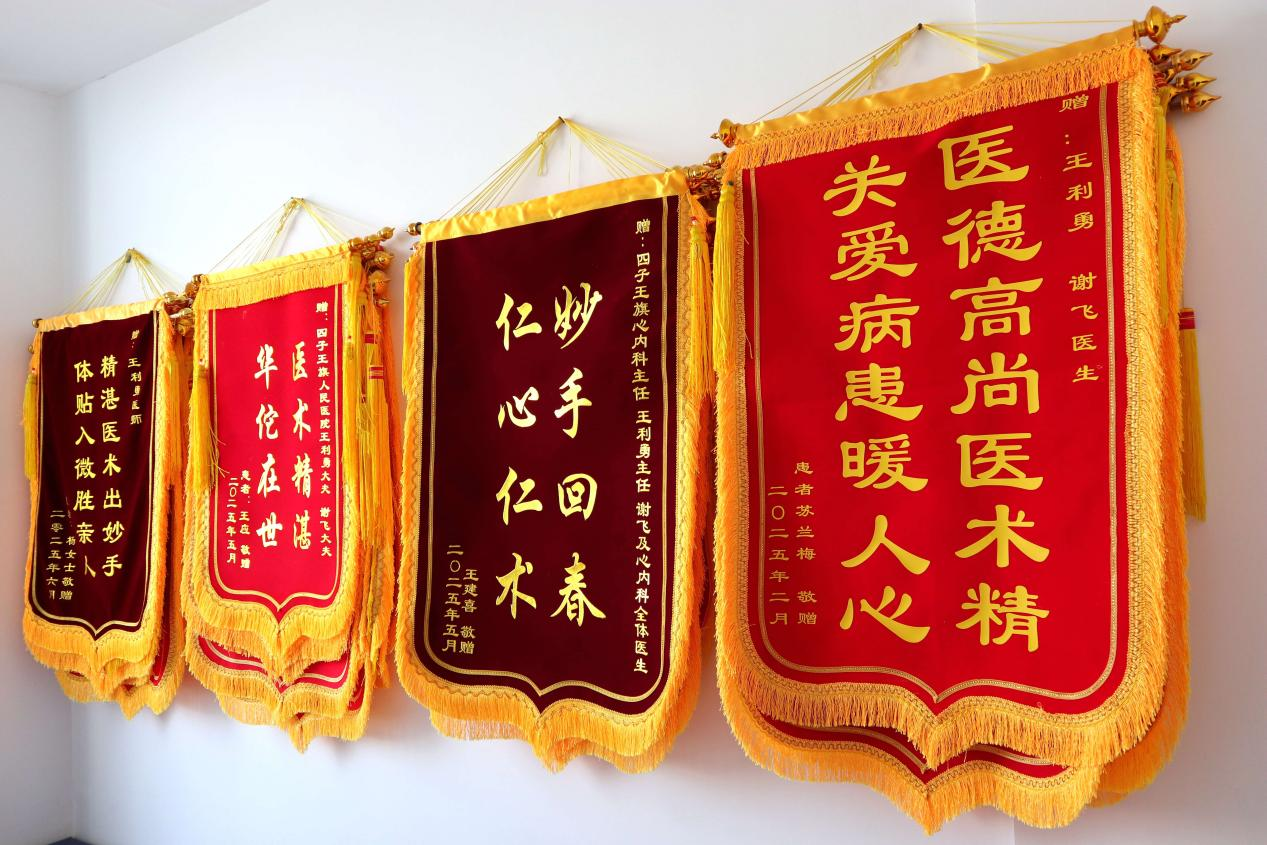 赠:王利勇医师
精湛医术出妙手
体贴入微胜亲人
杨女士敬赠
二零二五年六月
赠:四子王旗人民医院王利勇大夫 谢飞大夫
医术精湛
华佗在世
患者:王应 敬赠
二〇二五年五月
赠:四子王旗心内科主任 王利勇主任 谢飞及心内科全体医生
妙手回春
仁心仁术
王建喜 敬赠
二〇二五年五月
赠:王利勇 谢飞医生
医德高尚医术精
关爱病患暖人心
患者苏兰梅 敬赠
二〇二五年二月